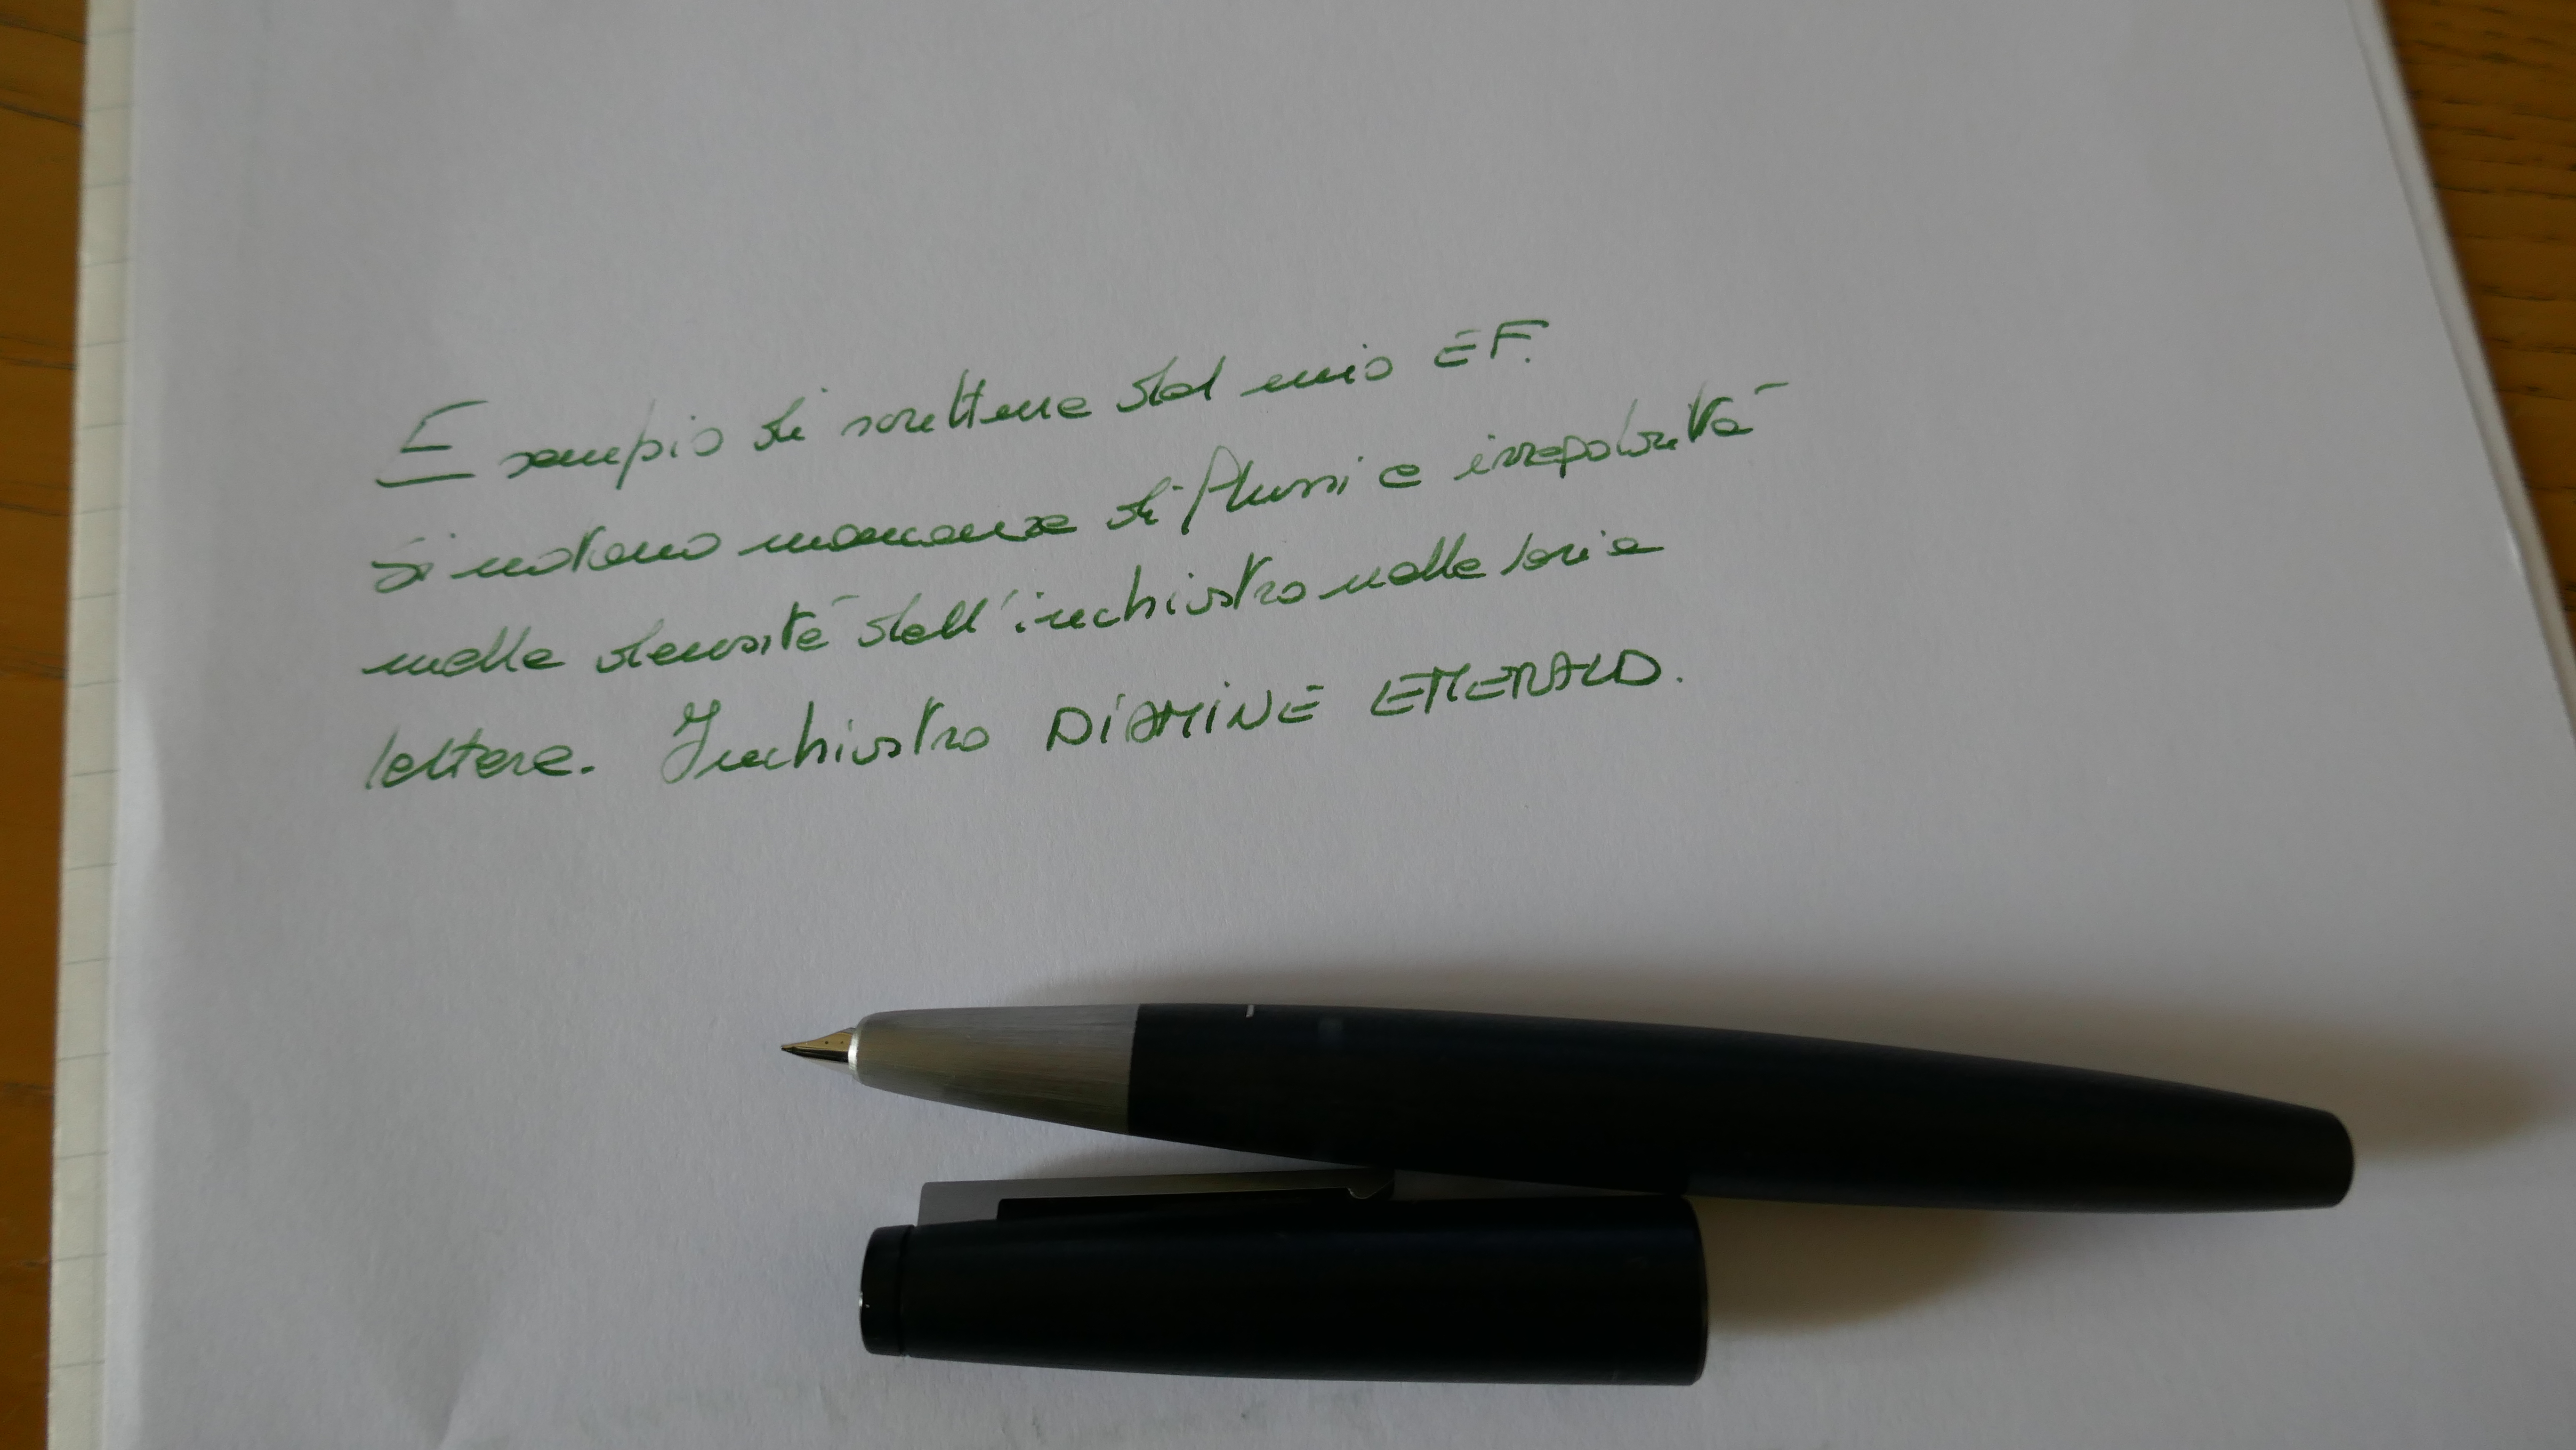 Esempio di scrittura del mio EF.
Si notano mancanza di flussi e irregolarità
nella densità dell'inchiostro nelle varie
lettere. Inchiostro DIAMINE EMERALD.